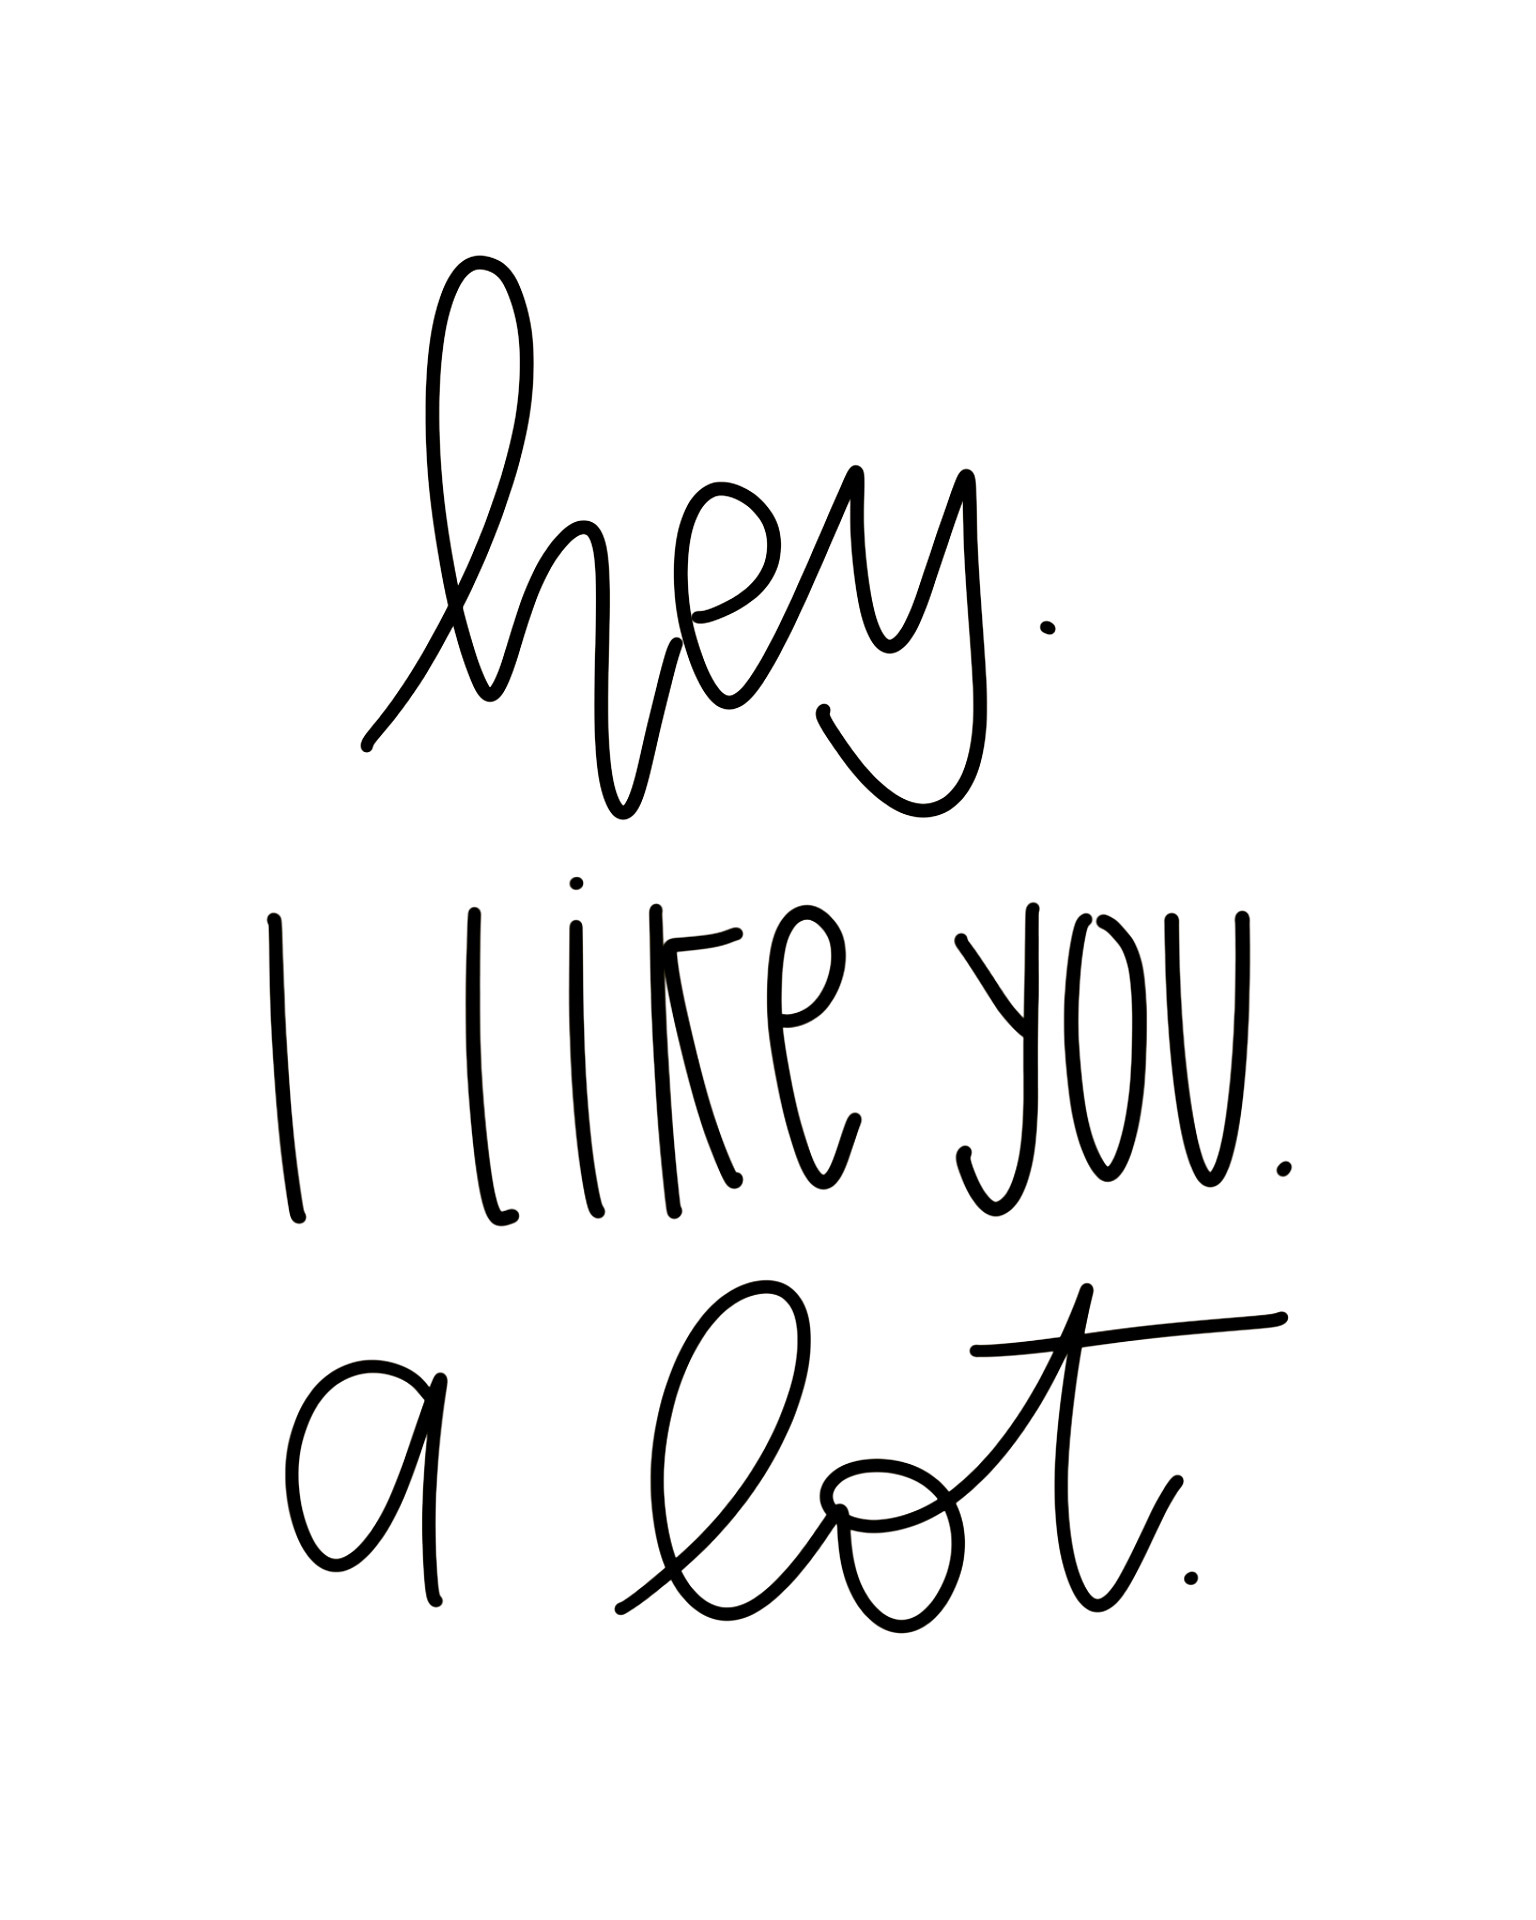 hey.
I Like you.
a lot.